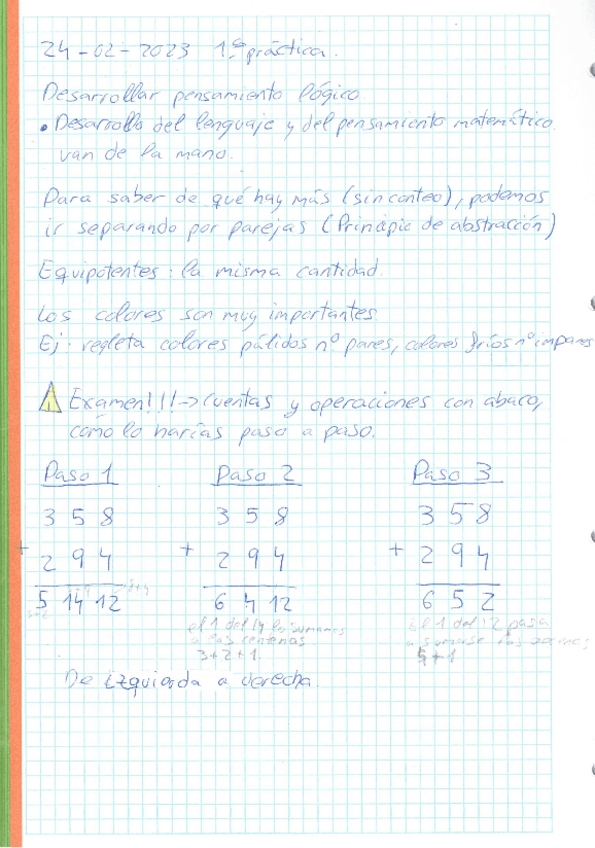 24-02-2023 1ª práctica.
Desarrollar pensamiento lógico
• Desarrollo del lenguaje y del pensamiento matemático
van de la mano.
Para saber de qué hay más (sin conteo), podemos
ir separando por parejas (Principio de abstracción)
Equipotentes: la misma cantidad.
Los colores son muy importantes
Ej: regleta colores pálidos nº pares, colores fríos nº impares
Examen!!!→ Cuentas y operaciones con abaco,
cómo lo harías paso a paso.
Paso 1 Paso 2 Paso 3
3 5 8 3 5 8 3 5 8
+ 2 9 4 + 2 9 4 + 2 9 4
5 14 12 6 4 12 6 5 2
el 1 del 14 lo sumamos el 1 del 12 pasa
a las centenas a sumarse las
3+2+1. 5+1
De izquierda a derecha.